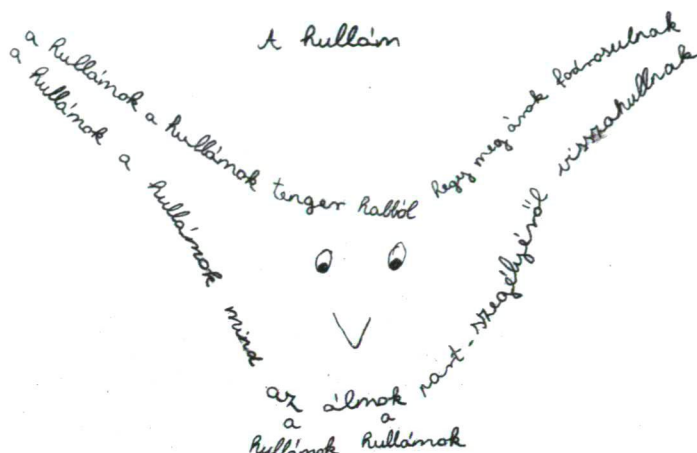 A hullám
a hullámok a hullámok tenger habból hegy meg árok fodrosulnak
a hullámok a hullámok mind az álmok part-szegélyéről visszahullnak
a a
hullámok hullámok